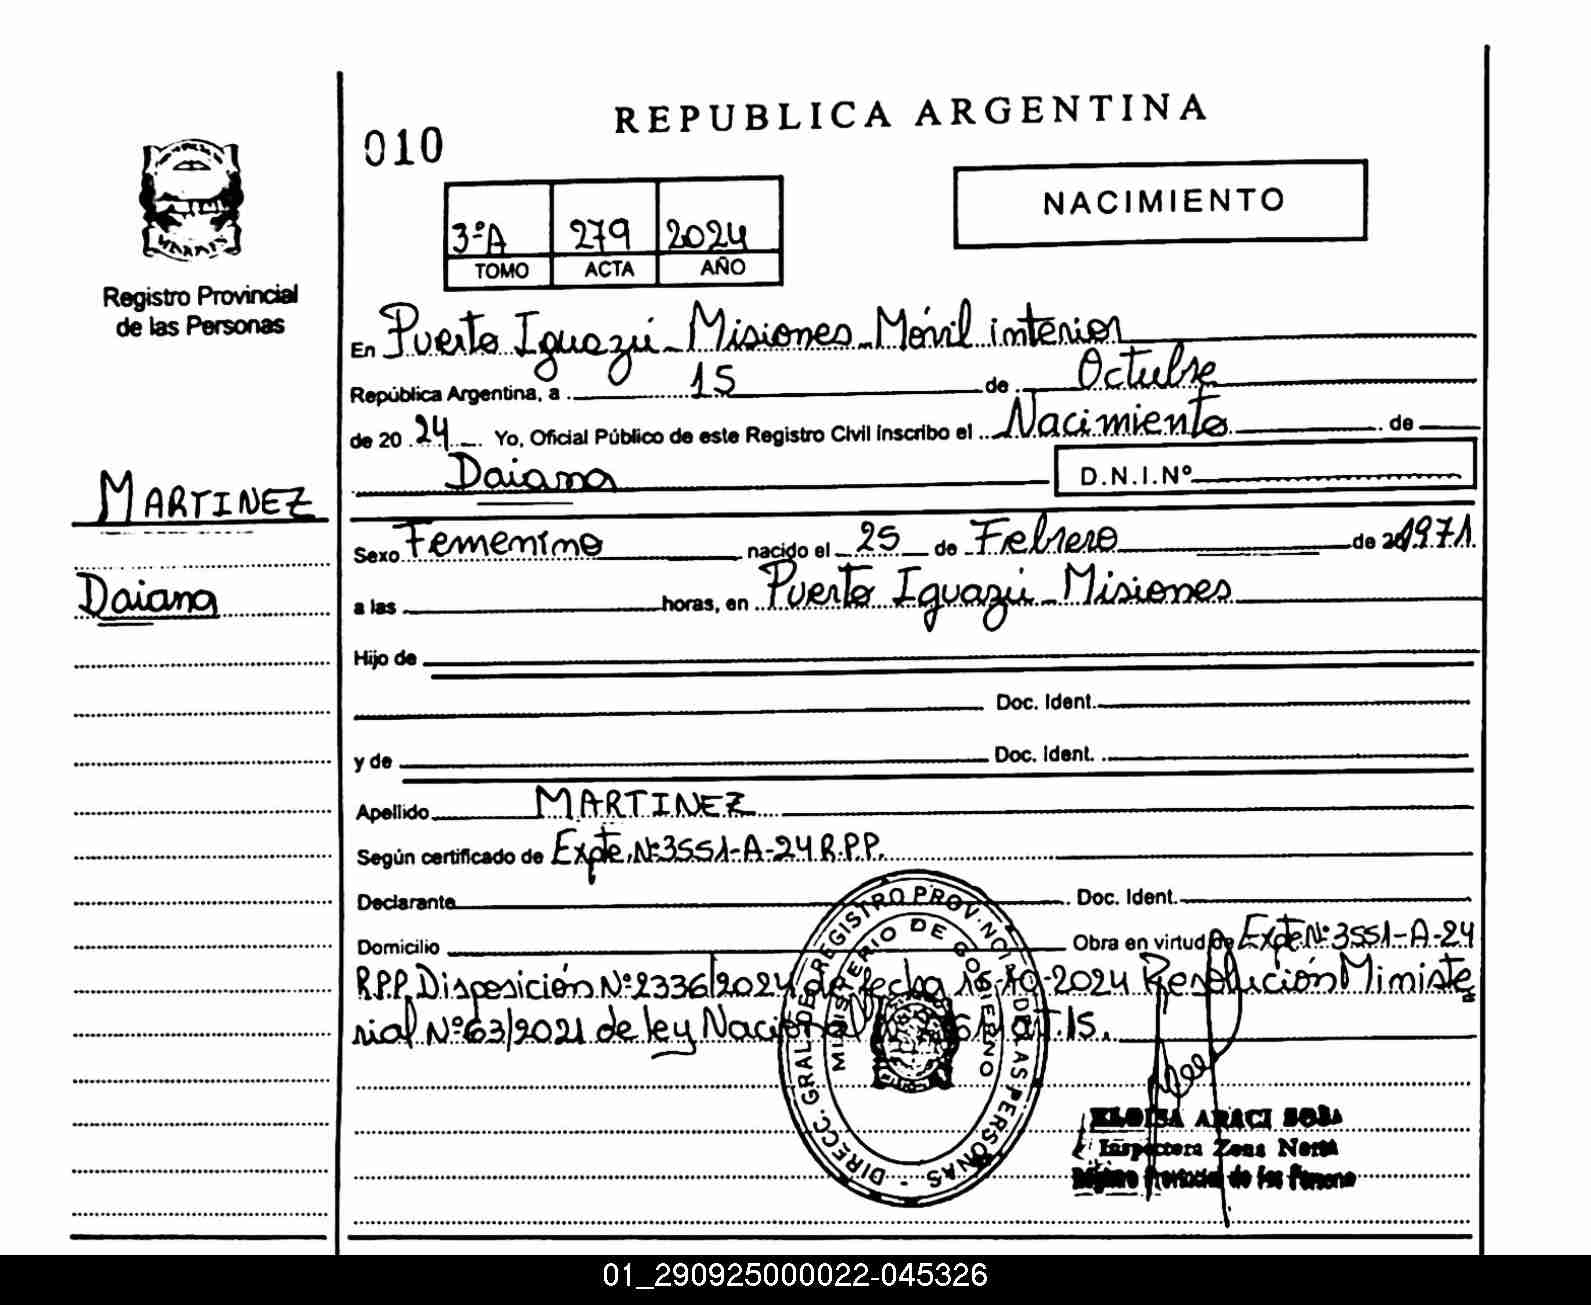 REPUBLICA ARGENTINA
010
NACIMIENTO
3ºA 279 2024
TOMO ACTA AÑO
Registro Provincial
de las Personas
En Puerto Iguazú - Misiones - Móvil interior
República Argentina, a 15 de Octubre
de 20 24 Yo, Oficial Público de este Registro Civil inscribo el Nacimiento de
Daiana D.N.I.Nº
MARTINEZ
Daiana
Sexo Femenino nacido el 25 de Febrero de 1971
a las horas, en Puerto Iguazú - Misiones
Hijo de
Doc. Ident.
y de Doc. Ident.
Apellido MARTINEZ
Según certificado de Expte. Nº 3551-A-24 R.P.P.
Declarante Doc. Ident.
Domicilio Obra en virtud de Expte Nº 3551-A-24
R.P.P. Disposición Nº 2336/2024 de fecha 15-10-2024 Resolución Ministe
rial Nº 63/2021 de ley Nacional art. 15.
DIRECC. GRAL. DE REGISTRO PROV. DE LAS PERSONAS
MINISTERIO DE GOBIERNO
ELOISA ARACI SOSA
Inspectora Zona Norte
Registro Provincial de las Persona
01_290925000022-045326